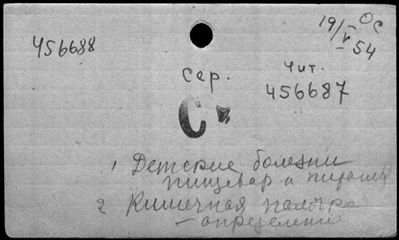 456688
19/V 54
ОС
Сер.
Чит.
456687
С
1 Детские болезни
пищевар и
2 Кишечная палочка
— определение